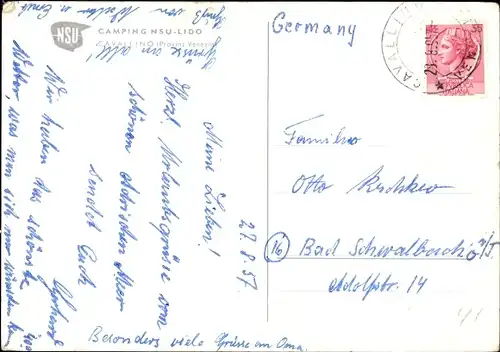 NSU
CAMPING NSU-LIDO
CAVALLINO (Provinz Venedig)
Germany
CAVALLINO
27.8.57
Meine Lieben!
Herzl. Urlaubsgrüsse vom
schönen Adriatischen Meer
sendet Euch
Gerhard
Wir haben das schönste
Wetter, was man sich nur wünschen kann
Grüsse an alle!
Gruß von
Besonders viele Grüsse an Oma.
Familie
Otto
16 Bad Schwalbach
Adolfstr. 14